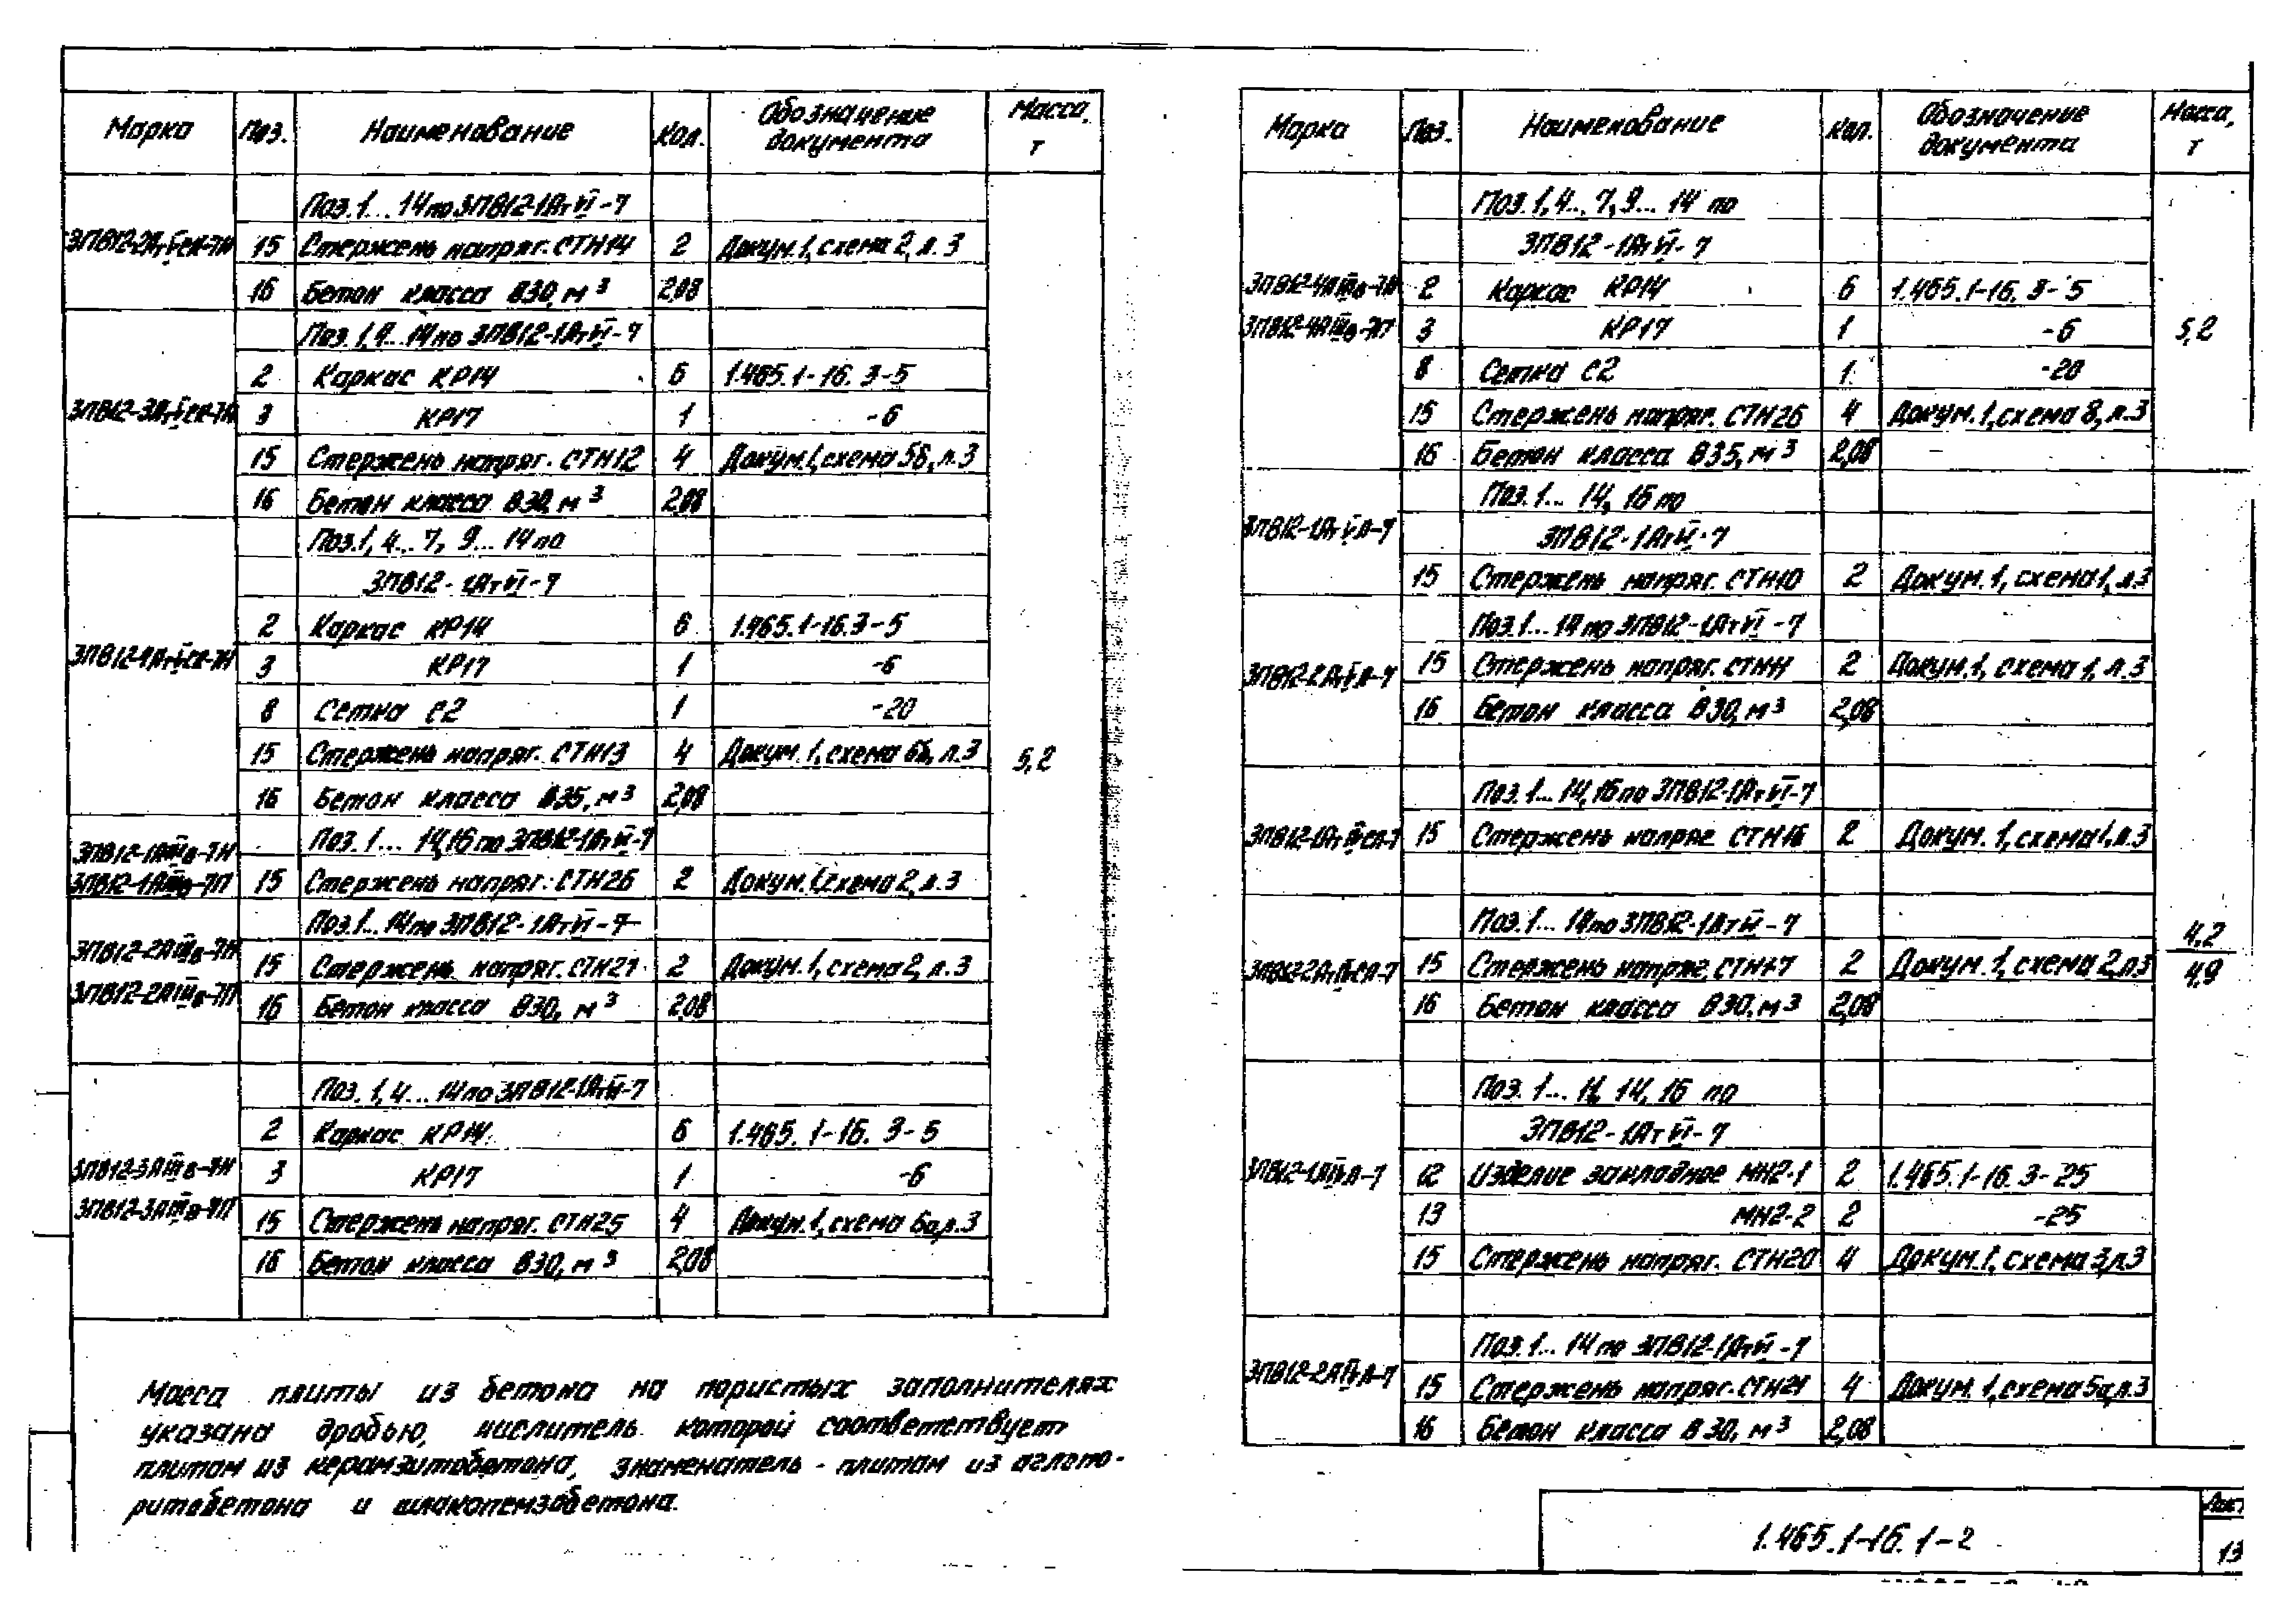 Марка Поз. Наименование Кол. Обозначение документа Масса, т
Поз. 1... 14 по 3ПВ12-1АтVI-7
3ПВ12-2АтVСК-7Н 15 Стержень напряг. СТН14 2 Докум. 1, схема 2, л. 3
16 Бетон класса В30, м³ 2,08
Поз. 1, 4... 14 по 3ПВ12-1АтVI-7
2 Каркас КР14 6 1.465.1-16. 3-5
3ПВ12-3АтVСК-7Н 3 КР17 1 -6
15 Стержень напряг. СТН12 4 Докум. 1, схема 5б, л. 3
16 Бетон класса В30, м³ 2,08
Поз. 1, 4... 7, 9... 14 по
3ПВ12-1АтVI-7
2 Каркас КР14 6 1.465.1-16. 3-5
3ПВ12-4АтVСК-7Н 3 КР17 1 -6
8 Сетка С2 1 -20
15 Стержень напряг. СТН13 4 Докум. 1, схема 6б, л. 3 5,2
16 Бетон класса В35, м³ 2,08
3ПВ12-1АIIIв-7Н Поз. 1... 14, 16 по 3ПВ12-1АтVI-7
3ПВ12-1АIIIв-7П 15 Стержень напряг. СТН26 2 Докум. 1, схема 2, л. 3
Поз. 1... 14 по 3ПВ12-1АтVI-7
3ПВ12-2АIIIв-7Н 15 Стержень напряг. СТН27 2 Докум. 1, схема 2, л. 3
3ПВ12-2АIIIв-7П 16 Бетон класса В30, м³ 2,08
Поз. 1, 4... 14 по 3ПВ12-1АтVI-7
2 Каркас КР14 6 1.465.1-16. 3-5
3ПВ12-3АIIIв-7Н 3 КР17 1 -6
3ПВ12-3АIIIв-7П 15 Стержень напряг. СТН25 4 Докум. 1, схема 6а, л. 3
16 Бетон класса В30, м³ 2,08
Масса плиты из бетона на пористых заполнителях
указана дробью, числитель которой соответствует
плитам из керамзитобетона, знаменатель - плитам из аглопо-
ритобетона и шлакопемзобетона.
Марка Поз. Наименование Кол. Обозначение документа Масса, т
Поз. 1, 4... 7, 9... 14 по
3ПВ12-1АтVI-7
3ПВ12-4АIIIв-7Н 2 Каркас КР14 6 1.465.1-16. 3-5
3ПВ12-4АIIIв-7П 3 КР17 1 -6 5,2
8 Сетка С2 1 -20
15 Стержень напряг. СТН26 4 Докум. 1, схема 8, л. 3
16 Бетон класса В35, м³ 2,08
Поз. 1... 14, 16 по
3ПВ12-1АтVЛ-7 3ПВ12-1АтVI-7
15 Стержень напряг. СТН10 2 Докум. 1, схема 1, л. 3
Поз. 1... 14 по 3ПВ12-1АтVI-7
3ПВ12-2АтVЛ-7 15 Стержень напряг. СТН11 2 Докум. 1, схема 1, л. 3
16 Бетон класса В30, м³ 2,08
Поз. 1... 14, 16 по 3ПВ12-1АтVI-7
3ПВ12-1АтIVСЛ-7 15 Стержень напряг. СТН16 2 Докум. 1, схема 1, л. 3
Поз. 1... 14 по 3ПВ12-1АтVI-7 4,2
3ПВ12-2АтIVСЛ-7 15 Стержень напряг. СТН17 2 Докум. 1, схема 2, л. 3 4,9
16 Бетон класса В30, м³ 2,08
Поз. 1... 11, 14, 16 по
3ПВ12-1АтVI-7
3ПВ12-1АIVЛ-7 12 Изделие закладное МН2-1 2 1.465.1-16. 3-25
13 МН2-2 2 -25
15 Стержень напряг. СТН20 4 Докум. 1, схема 3, л. 3
Поз. 1... 14 по 3ПВ12-1АтVI-7
3ПВ12-2АIVЛ-7 15 Стержень напряг. СТН21 4 Докум. 1, схема 5а, л. 3
16 Бетон класса В30, м³ 2,08
1.465.1-16. 1-2
Лист
13